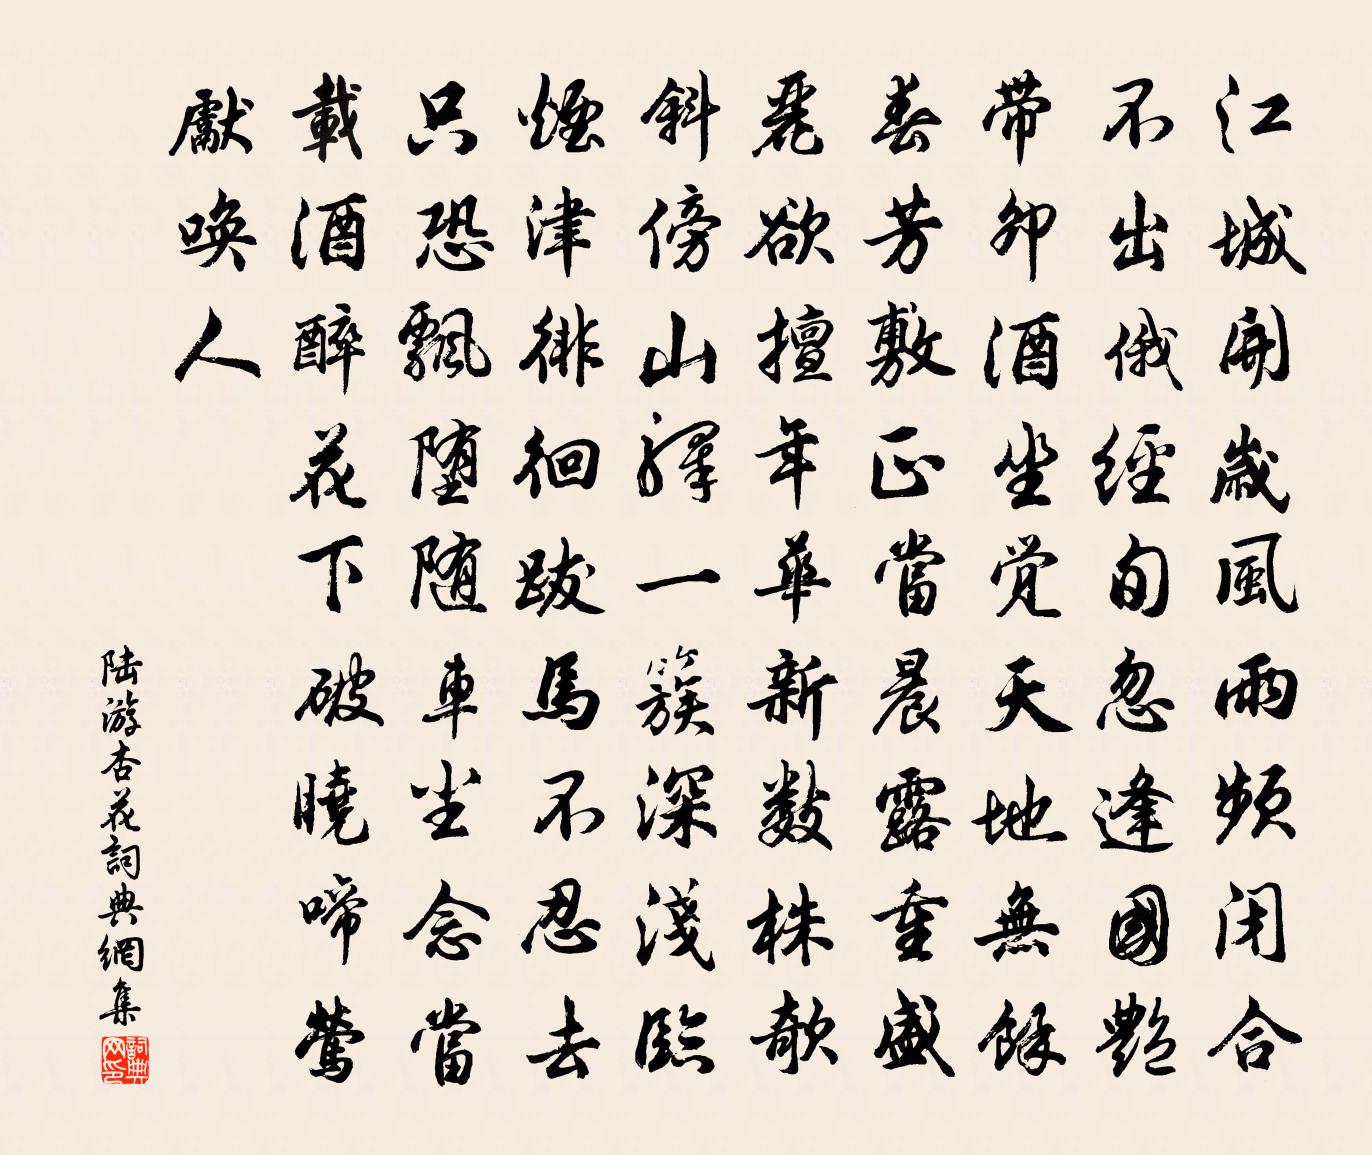 江城開歲風雨頻闭合
不出俄經旬忽逢國艷
帶卯酒坐觉天地無餘
春芳敷正當晨露重盛
麗欲擅年華新數株欹
斜傍山驛一簇深淺臨
煙津徘徊跋馬不忍去
只恐飄堕随車尘念當
載酒醉花下破曉啼鶯
獻喚人
陆游杏花詞典網集
詞典网印